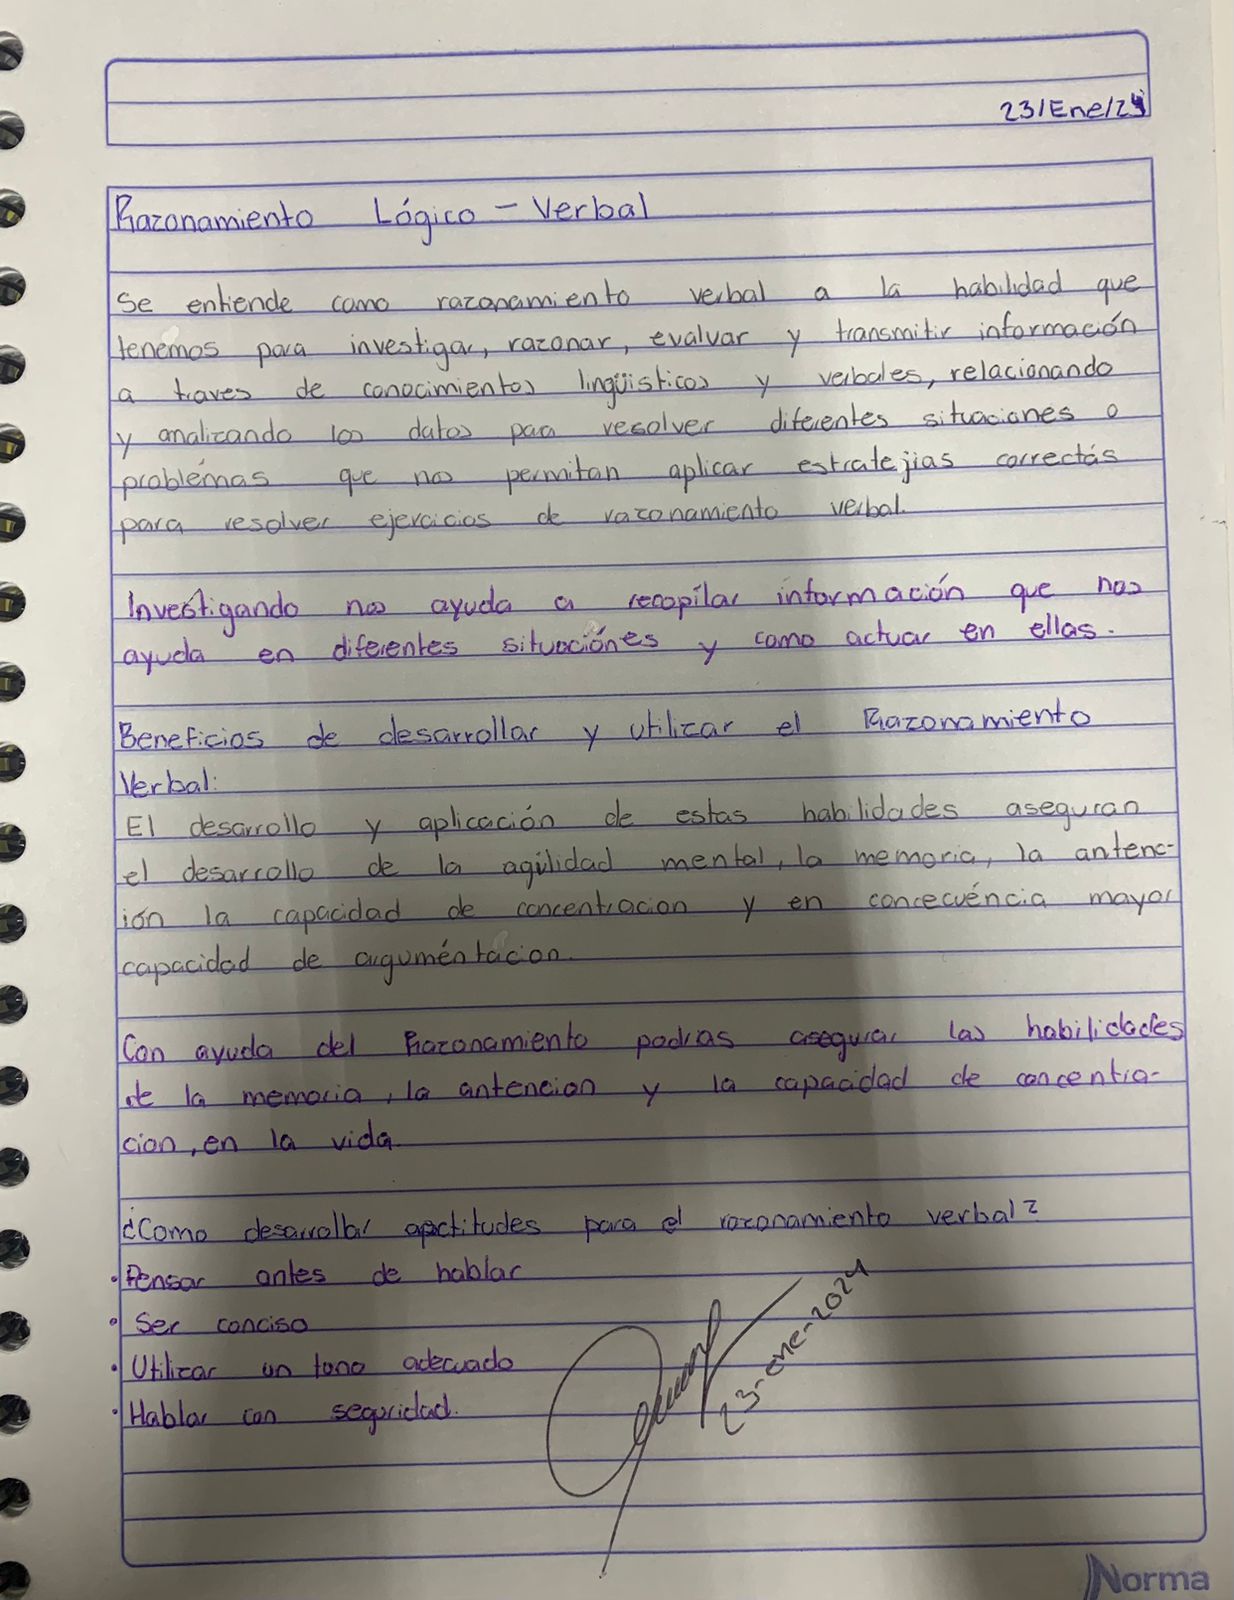 23/Ene/24
Razonamiento Lógico - Verbal
Se entiende como razonamiento verbal a la habilidad que
tenemos para investigar, razonar, evaluar y transmitir información
a traves de conocimientos lingüisticos y verbales, relacionando
y analizando los datos para resolver diferentes situaciones o
problemas que nos permitan aplicar estratejias correctás
para resolver ejercicios de razonamiento verbal.
Investigando nos ayuda a recopilar información que nos
ayuda en diferentes situaciónes y como actuar en ellas.
Beneficios de desarrollar y utilizar el Razonamiento
Verbal:
El desarrollo y aplicación de estas habilidades aseguran
el desarrollo de la agilidad mental, la memoria, la antenc-
ión la capacidad de concentracion y en concecuéncia mayor
capacidad de arguméntacion.
Con ayuda del Razonamiento podrias asegurar las habilidades
de la memoria, la antencion y la capacidad de concentra-
cion, en la vida.
¿Como desarrollar apctitudes para el razonamiento verbal?
• Pensar antes de hablar
• Ser conciso
• Utilizar un tono adecuado
• Hablar con seguridad.
23-ene-2024
Norma